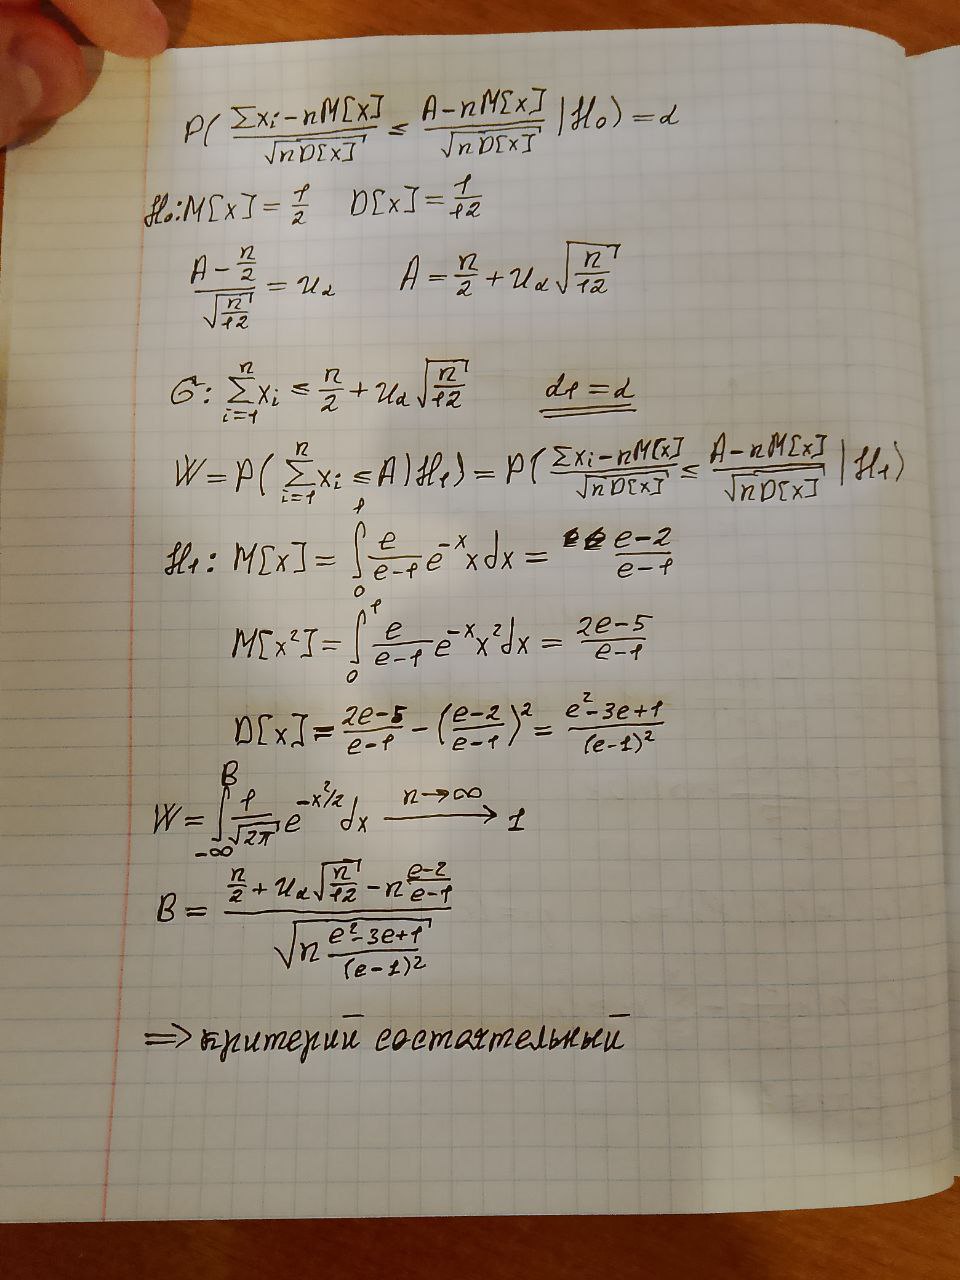 P( (∑xi − nM[x])/√(nD[x]) ≤ (A − nM[x])/√(nD[x]) | H₀) = α
H₀: M[x] = 1/2   D[x] = 1/12
(A − n/2)/√(n/12) = u_α   A = n/2 + u_α √(n/12)
G: ∑_{i=1}^{n} xi ≤ n/2 + u_α √(n/12)   α1 = α
W = P( ∑_{i=1}^{n} xi ≤ A | H₁) = P( (∑xi − nM[x])/√(nD[x]) ≤ (A − nM[x])/√(nD[x]) | H₁)
H₁: M[x] = ∫₀¹ e/(e−1) e^{−x} x dx = (e−2)/(e−1)
M[x²] = ∫₀¹ e/(e−1) e^{−x} x² dx = (2e−5)/(e−1)
D[x] = (2e−5)/(e−1) − ((e−2)/(e−1))² = (e²−3e+1)/(e−1)²
W = ∫_{−∞}^{B} 1/√(2π) e^{−x²/2} dx —n→∞→ 1
B = (n/2 + u_α √(n/12) − n (e−2)/(e−1)) / √(n (e²−3e+1)/(e−1)²)
⇒ критерий состоятельный